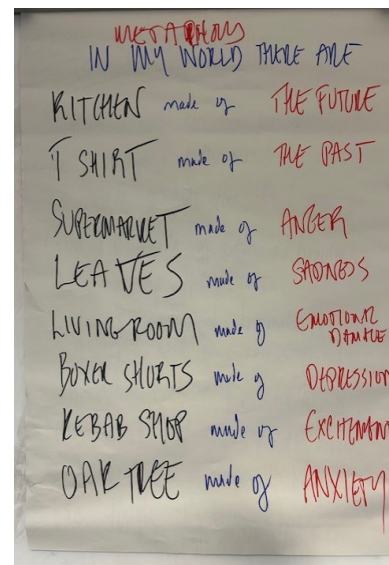 METAPHORS
IN MY WORLD THERE ARE
KITCHEN made of THE FUTURE
T SHIRT made of THE PAST
SUPERMARKET made of ANGER
LEAVES made of SADNESS
LIVING ROOM made of EMOTIONAL
DAMAGE
BOXER SHORTS made of DEPRESSION
KEBAB SHOP made of EXCITEMENT
OAK TREE made of ANXIETY